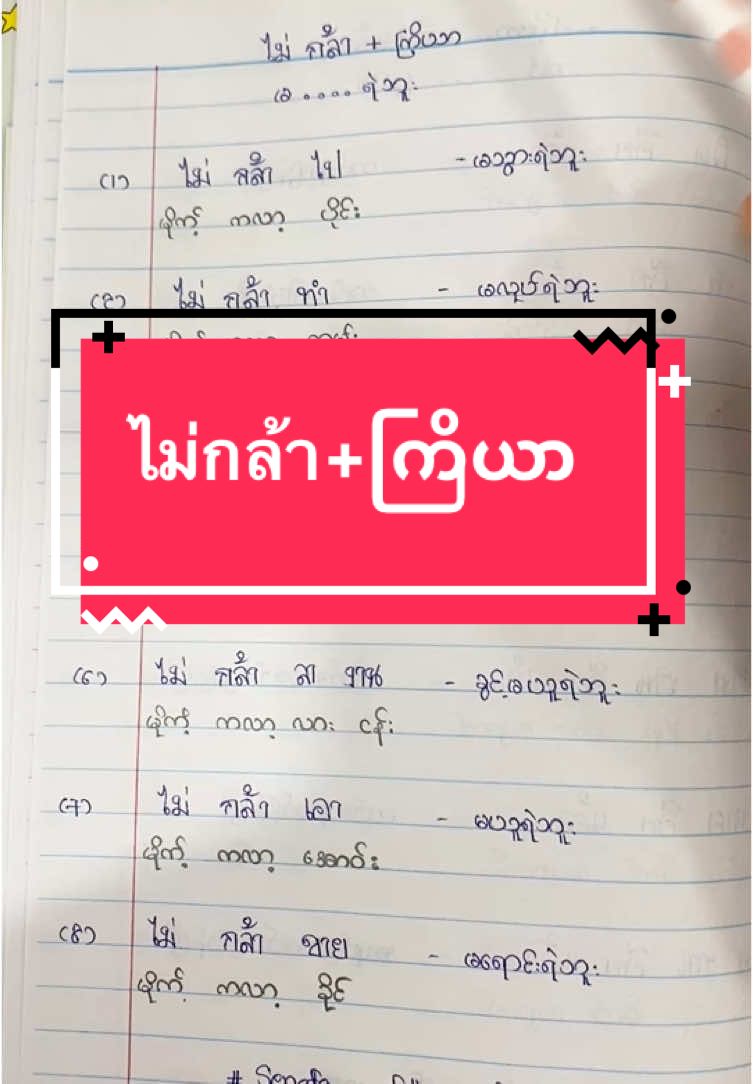 ไม่ กล้า + ကြိယာ
မ .... ရဲဘူး
(၁) ไม่ กล้า ไป - မသွားရဲဘူး
မိုက် ကလာ့ ပိုင်း
(၂) ไม่ กล้า ทำ - မလုပ်ရဲဘူး
ไม่กล้า+ကြိယာ
(၆) ไม่ กล้า ลา งาน - ခွင့်မယူရဲဘူး
မိုက် ကလာ့ လား ငန်း
(၇) ไม่ กล้า เอา - မယူရဲဘူး
မိုက် ကလာ့ အောင်း
(၈) ไม่ กล้า ขาย - မရောင်းရဲဘူး
မိုက် ကလာ့ ခိုင်